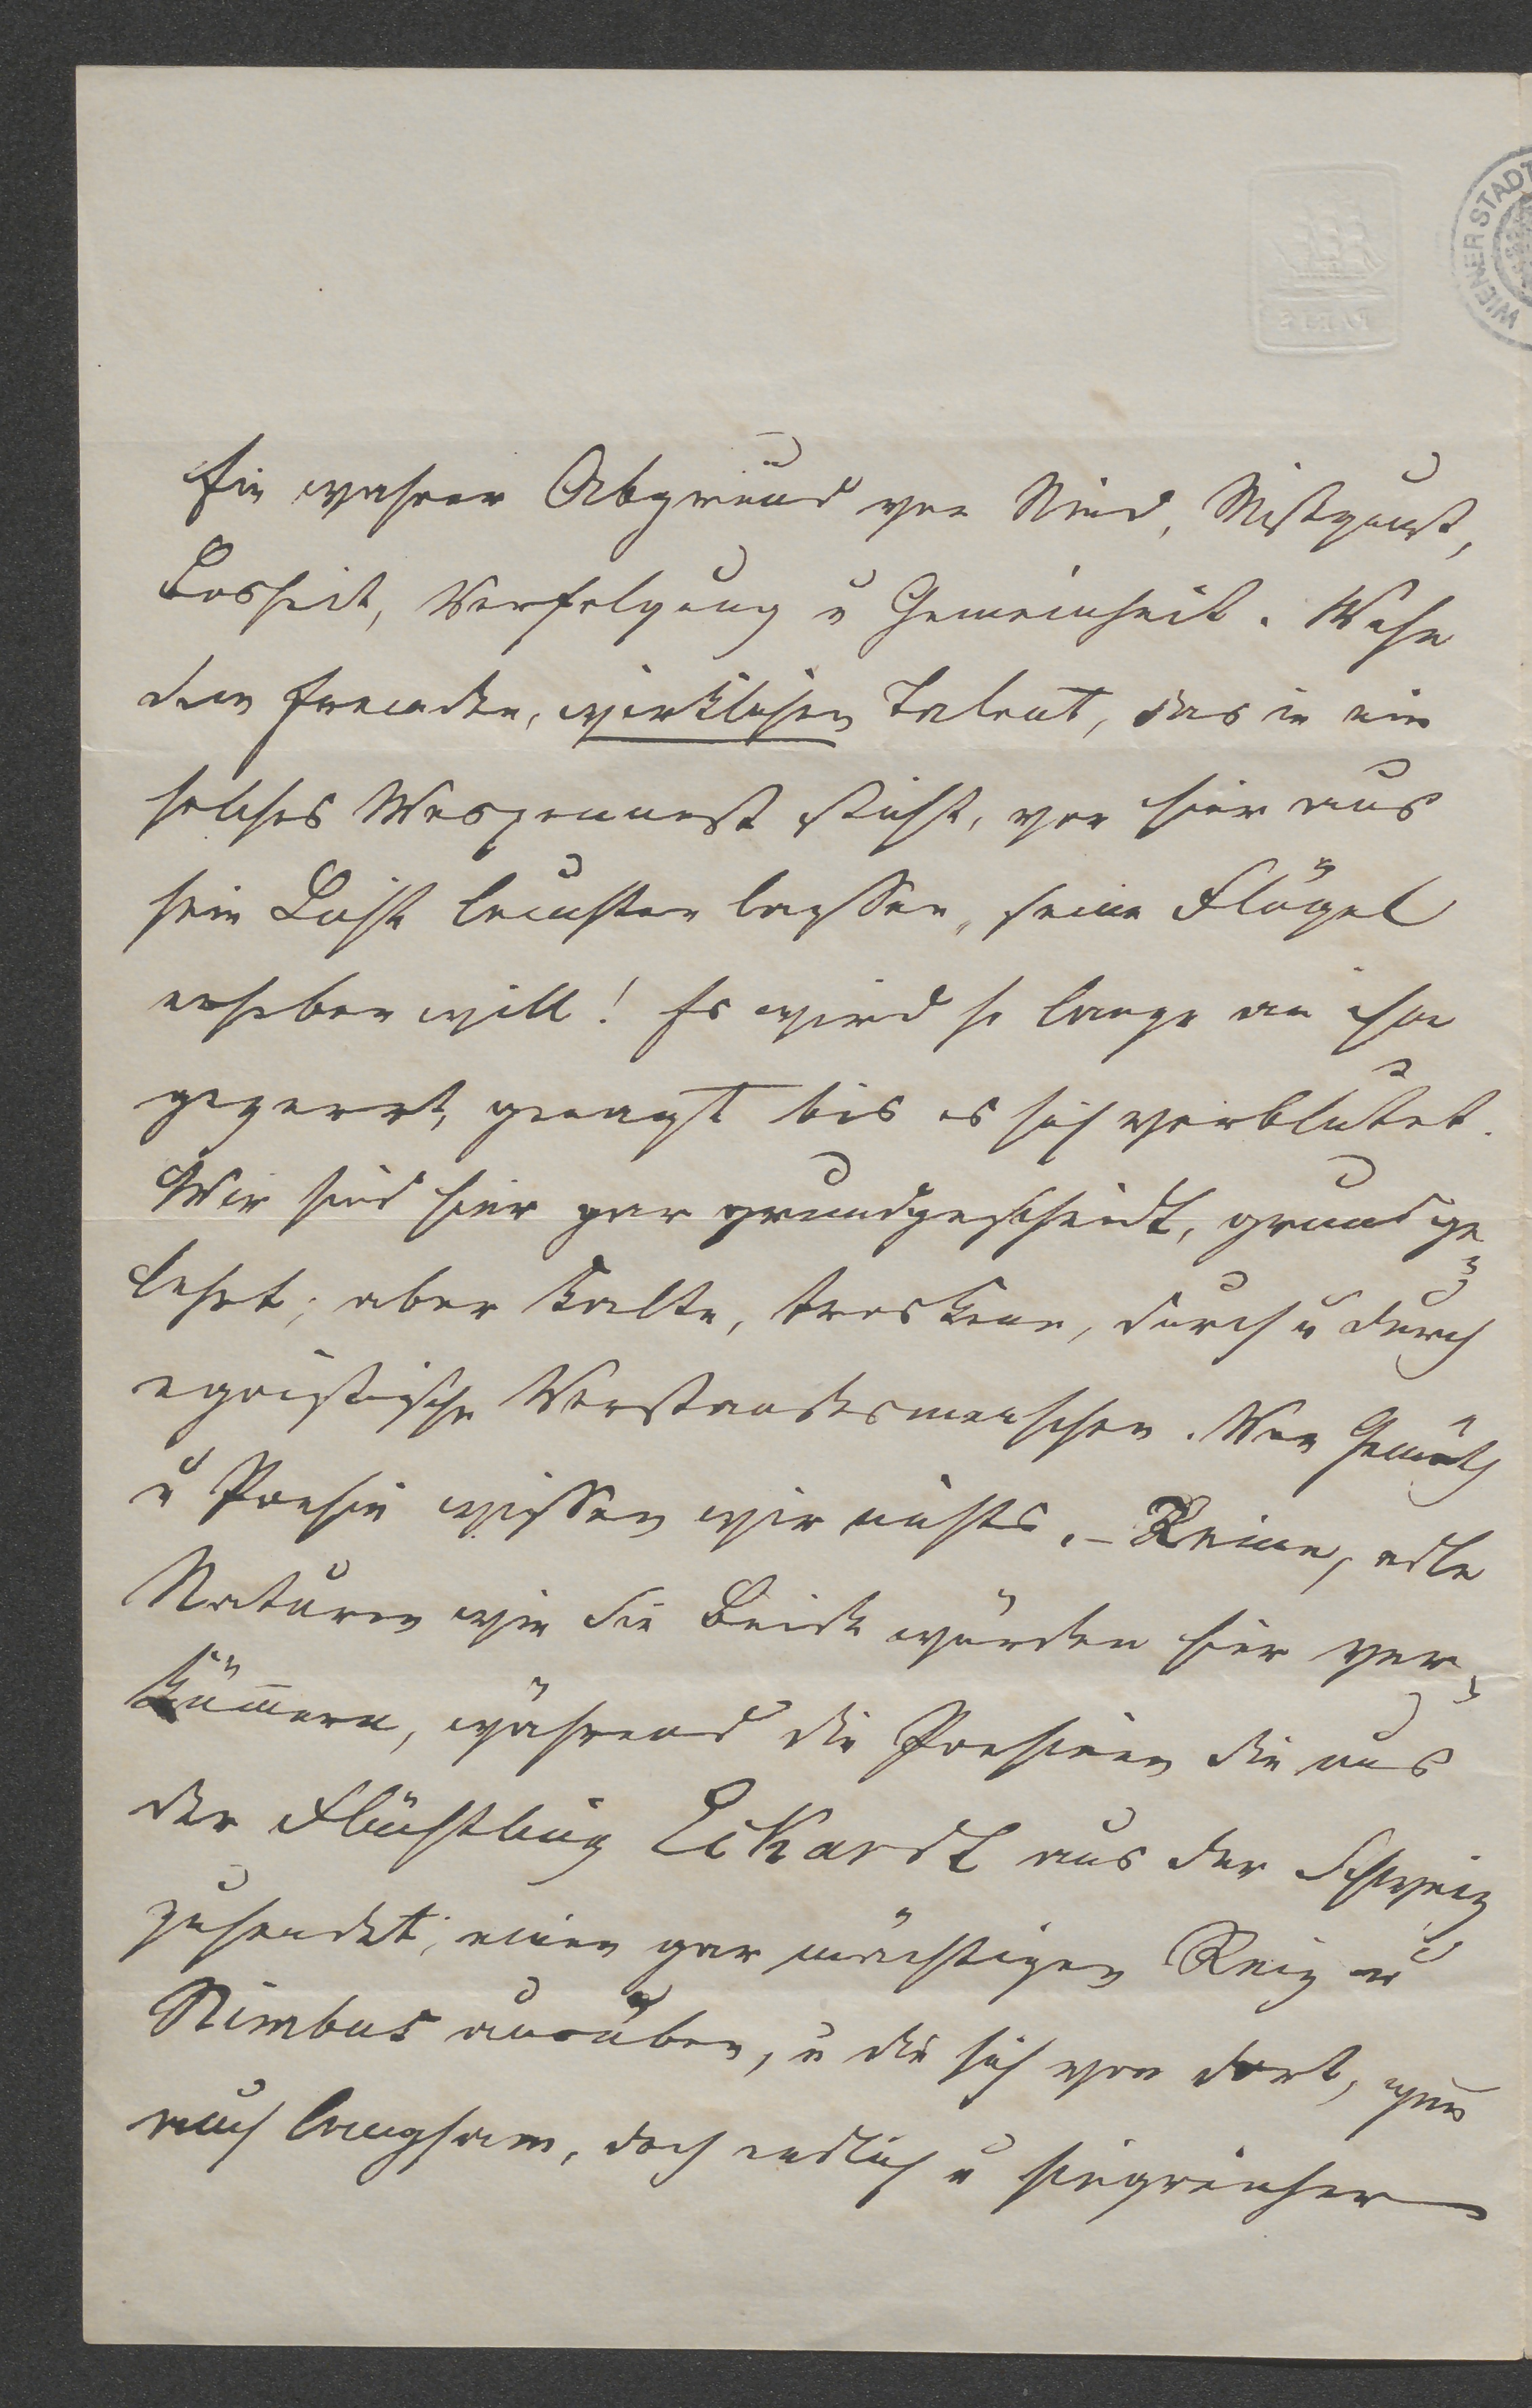 WIENER STADT
PARIS
Ein wahrer Abgrund von Neid, Mißgunst,
Bosheit, Verfolgung u Gemeinheit. Wehe
dem fremden, wirklichen Talent, das in ein
solches Wespennest sticht, von hier aus
sein Licht leuchten lassen, seine Flügel
erheben will! Es wird so lange an ihm
gezerrt, genagt bis es sich verblutet.
Wir sind hier gar grundgescheidt, grundge-
lehrt; aber kalte, trockene, durch u durch
egoistische Verstandesmenschen. Von Gemüth
u Poesie wissen wir nichts. – Reine, edle
Naturen wie Sie Beide würden hier ver-
kümmern, während die Poesieen die uns
der Flüchtling Eckardt aus der Schweiz
zusendet, einen gar mächtigen Reiz u
Nimbus ausüben, u die sich von dort, wenn
auch langsam, doch endlich u siegreicher